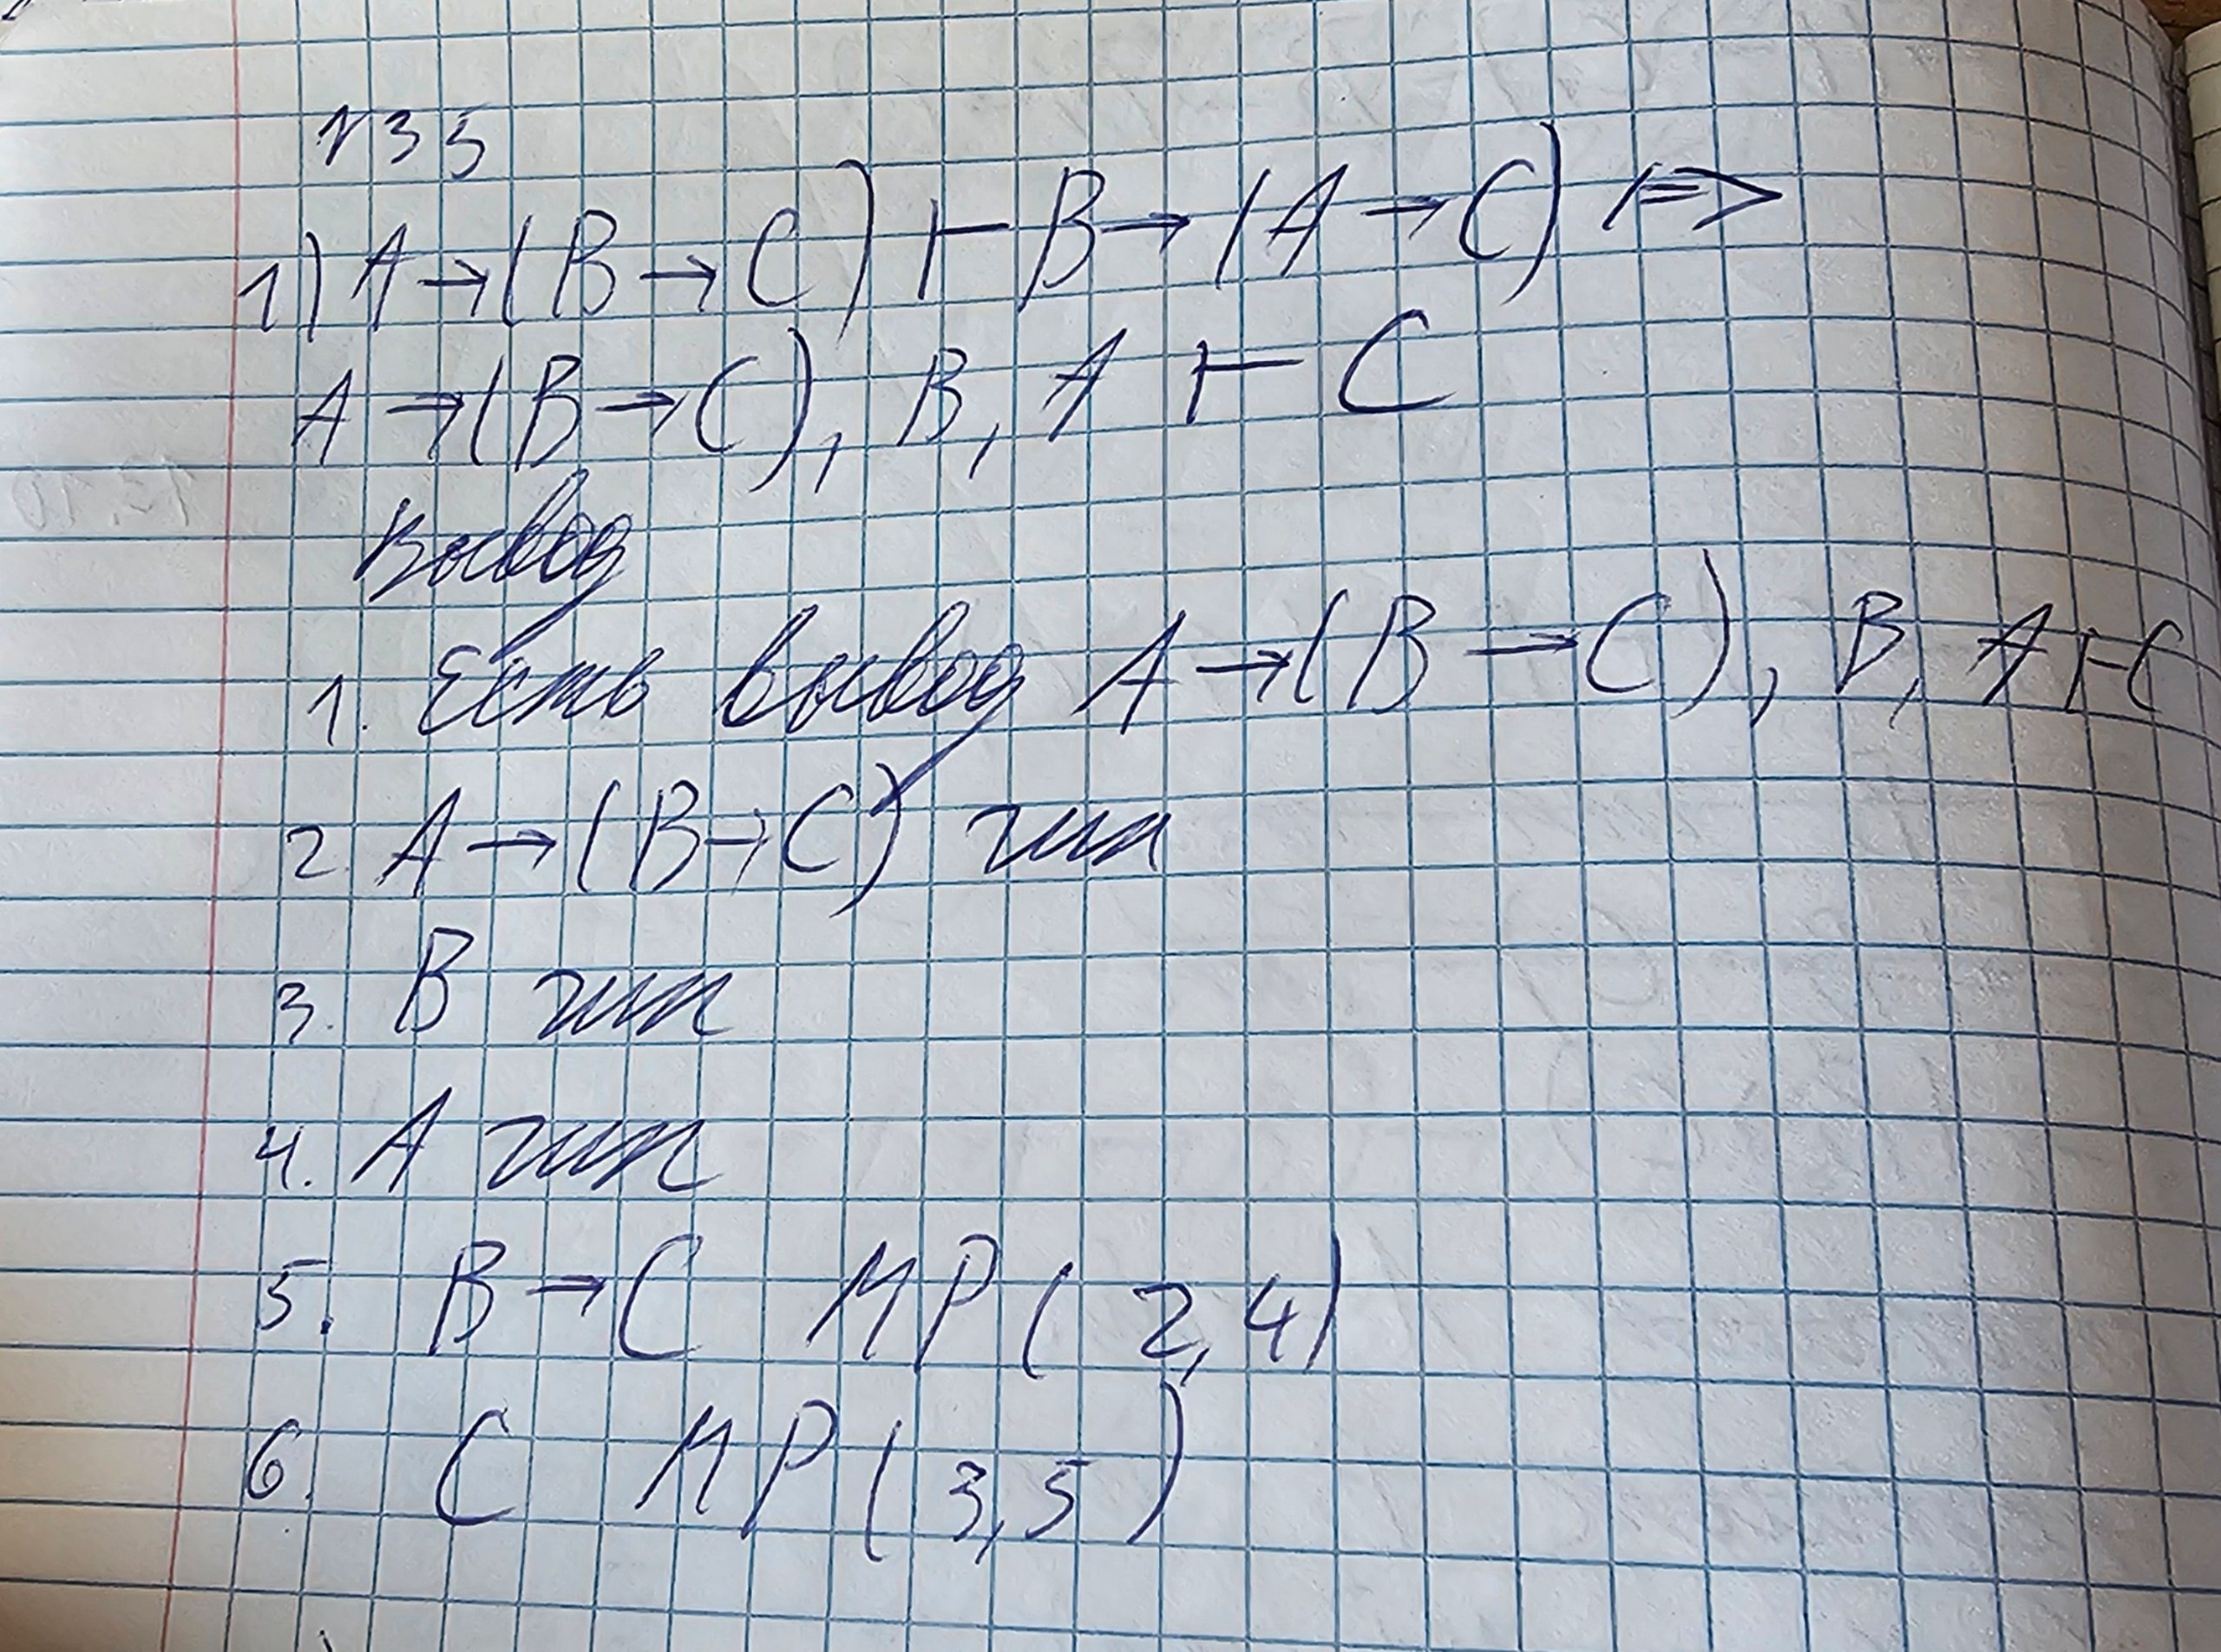 №35
1) A→(B→C) ⊢ B→(A→C) ⊨>
A→(B→C), B, A ⊢ C
Вывод
1. Есть вывод A→(B→C), B, A ⊢ C
2. A→(B→C) гип
3. B гип
4. A гип
5. B→C MP(2,4)
6. C MP(3,5)